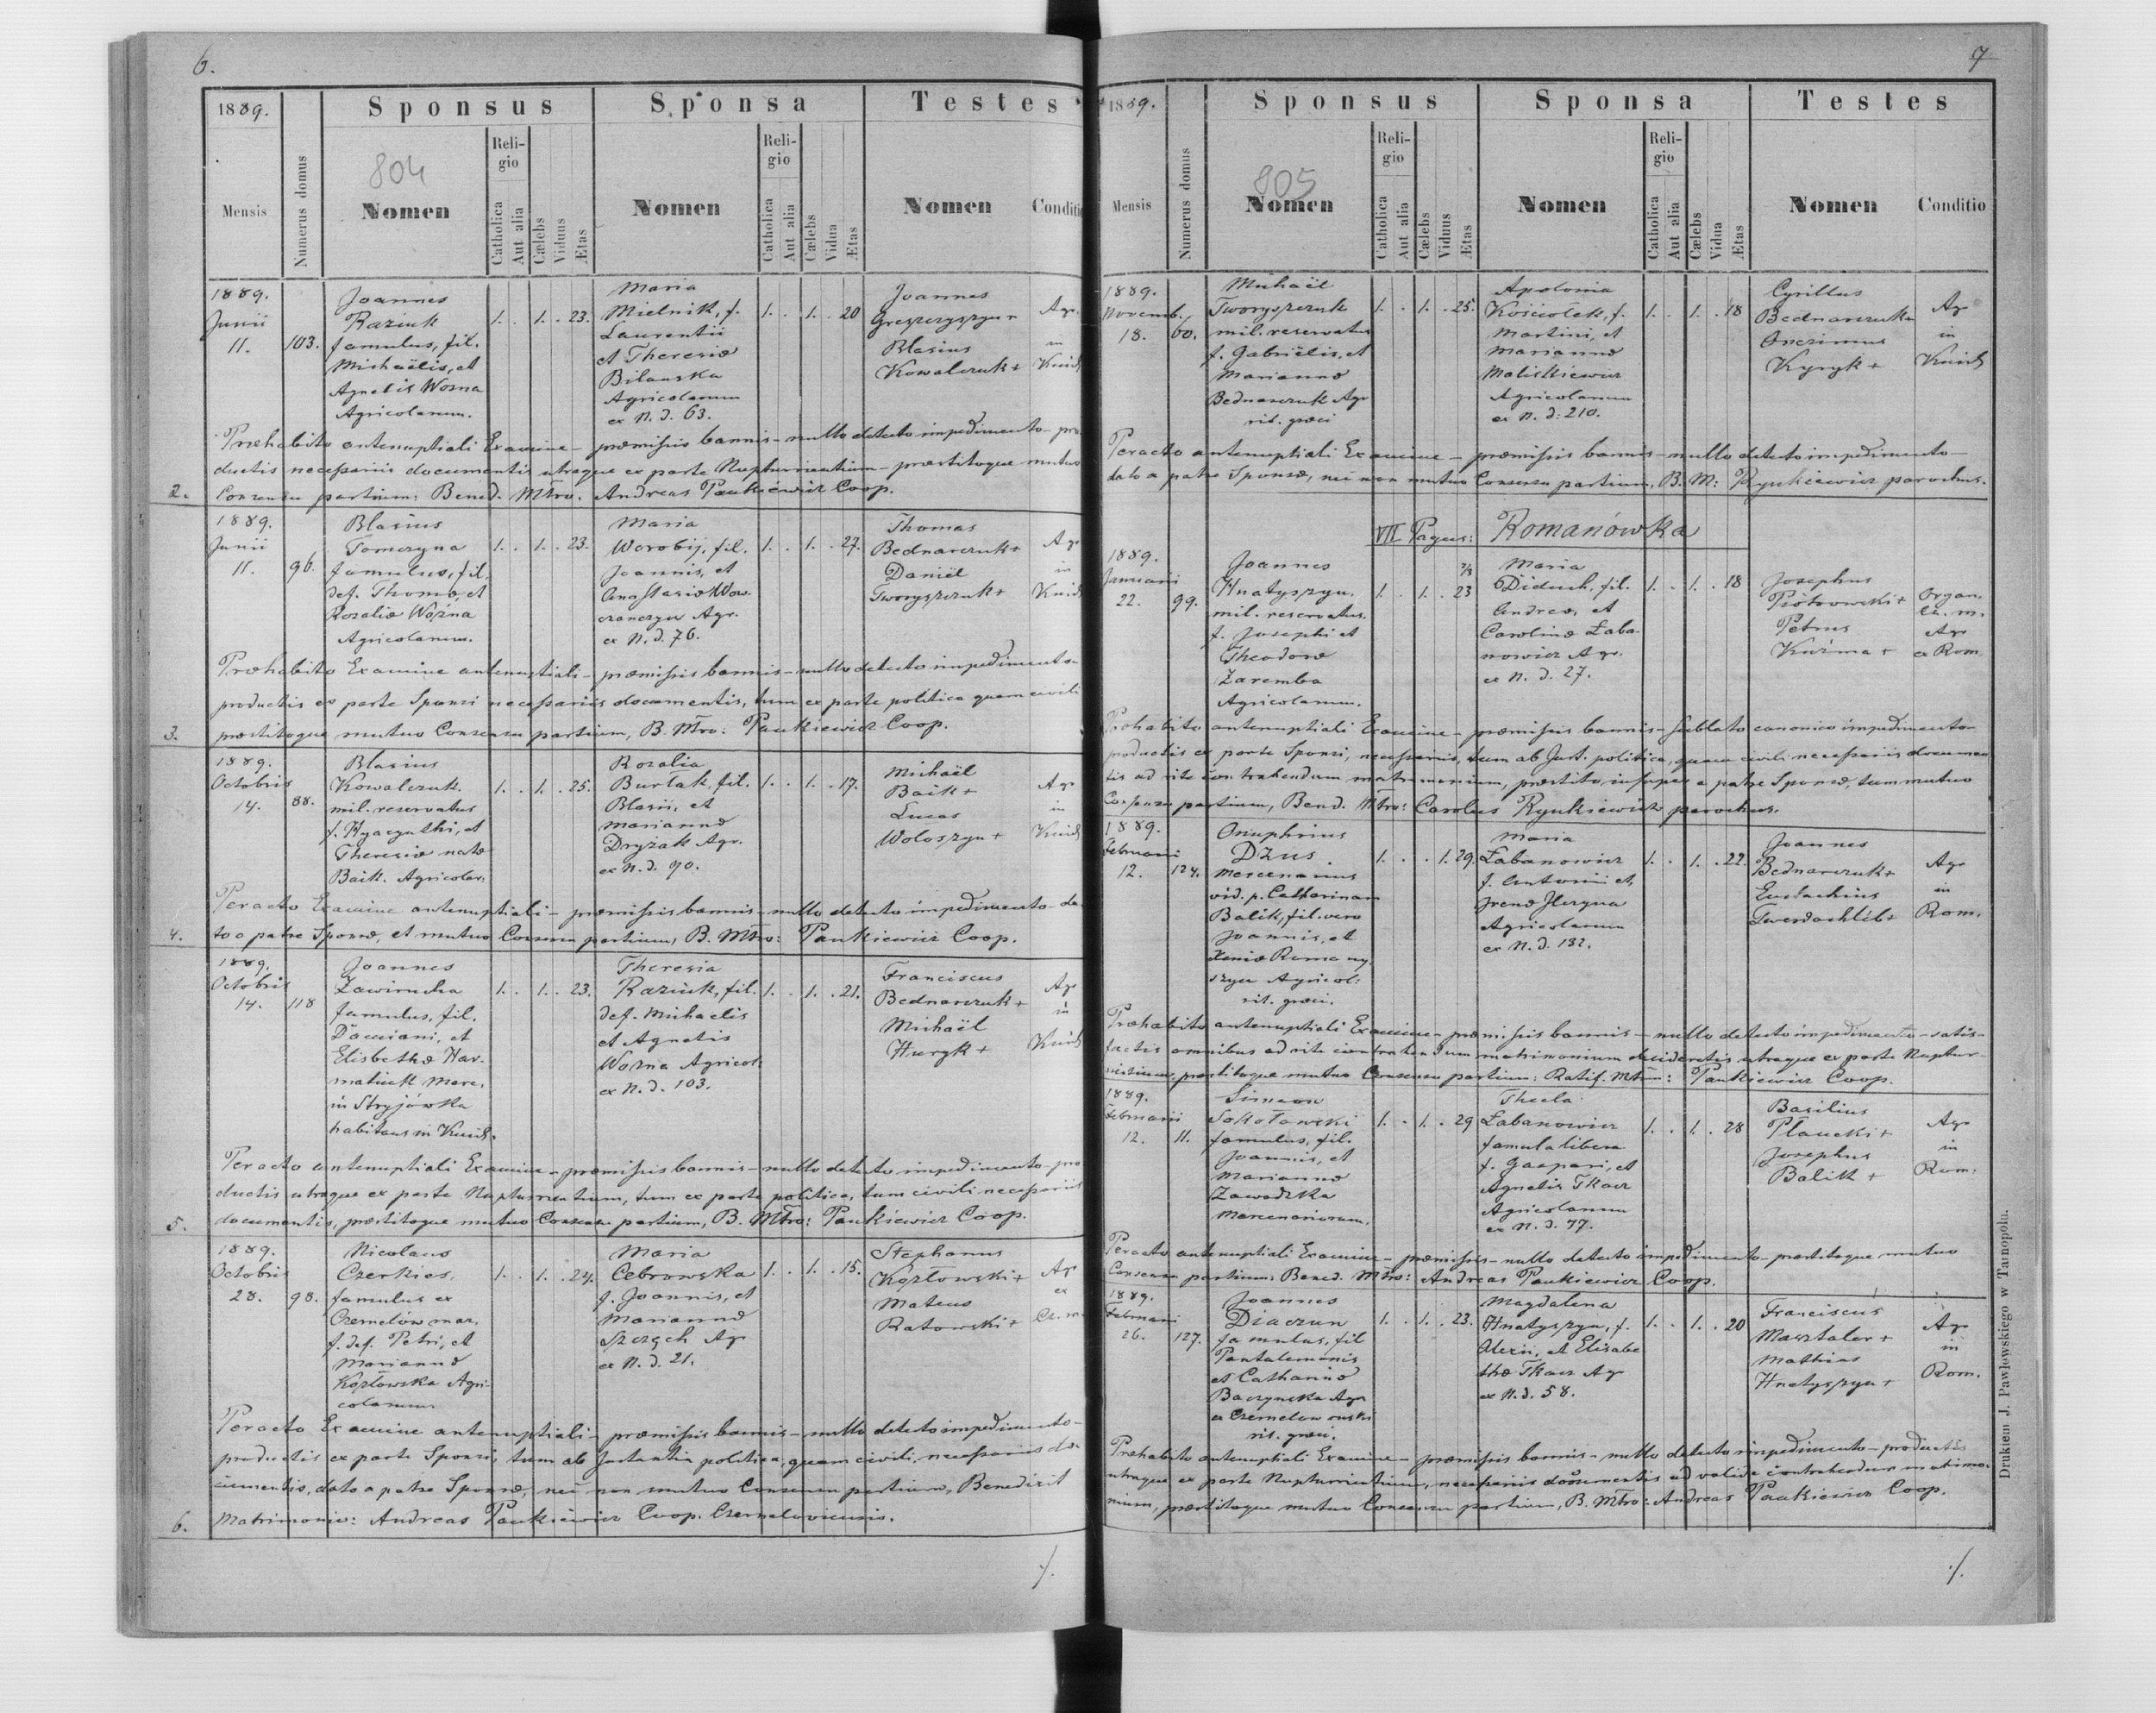 6.
1889.
Sponsus
Sponsa
Testes
804
Mensis
Numerus domus
Nomen
Religio
Catholica
Aut alia
Cælebs
Viduus
Ætas
Nomen
Religio
Catholica
Aut alia
Cælebs
Vidua
Ætas
Nomen
Conditio
1889.
Junii
11.
103.
Joannes
Raziuk
famulus, fil.
Michaëlis, et
Agnetis Wozna
Agricolarum.
1. . 1. . 23.
Maria
Mielnik, f.
Laurentii
et Theresiæ
Bilauska
Agricolarum
ex N. d. 63.
1. . 1. . 20
Joannes
Blasius
Kowalczuk +
Agr.
in
Præhabito antenuptiali Examine – præmissis bannis – nullo detecto impedimento – pro
ductis necessariis documentis utraque ex parte Nupturientium – præstitoque mutuo
2. Consensu partium: Bened. Mtro. Andreas Paukiewicz Coop.
1889.
Junii
11.
96.
Blasius
Tomczyna
famulus, fil.
def. Thomæ, et
Rozaliæ Woźna
Agricolarum.
1. . 1. . 23.
Maria
Worobij, fil.
Joannis, et
Anastasiæ Wow-
czanczyn Agr.
ex N. d. 76.
1. . 1. . 27.
Thomas
Bednarczuk +
Daniël
Tworyszczuk +
Agr
in
Præhabito Examine antenuptiali – præmissis bannis – nullo detecto impedimento –
productis ex parte Sponsi necessariis documentis, tum ex parte politica quam civili
3. præstitoque mutuo Consensu partium, B. Mtro: Paukiewicz Coop.
1889.
Octobris
14.
88.
Blasius
Kowalczuk
mil. reservatus
f. Hyacynthi, et
Theresiæ natæ
Baik. Agricolar:
1. . 1. . 25.
Rozalia
Burlak, fil.
Blasii, et
Mariannæ
Dryzak Agr.
ex N. d. 90.
1. . 1. . 17.
Michaël
Baik +
Lucas
Woloszyn +
Agr
in
Peracto Examine antenuptiali – præmissis bannis – nullo detecto impedimento – da-
4. to a patre Sponsæ, et mutuo Consensu partium, B. Mtro: Paukiewicz Coop.
1889.
Octobris
14.
118
Joannes
Zawirucha
famulus, fil.
Damiani, et
Elisbethæ Har-
matiuk merc.
in Stryjówka
1. . 1. . 23.
Theresia
Raziuk, fil.
def. Michaelis
et Agnetis
Wozna Agricol:
ex N. d. 103.
1. . 1. . 21.
Franciscus
Bednarczuk +
Michaël
Huryk +
Agr
in
Peracto antenuptiali Examine – præmissis bannis – nullo detecto impedimento – pro
ductis utraque ex parte Nupturientium, tum ex parte politica, tum civili necessariis
5. documentis, præstitoque mutuo Consensu partium, B. Mtro: Paukiewicz Coop.
1889.
Octobris
28.
98.
Nicolaus
Czerkies,
famulus ex
Czernelów maz.
f. def. Petri, et
Mariannæ
Kozłowska Agri-
colarum
1. . 1. . 24.
Maria
Cebrowska
f. Joannis, et
Mariannæ
Szczęch Agr
ex N. d. 21.
1. . 1. . 15.
Stephanus
Kozłowski +
Mateus
Ratowski +
Agr
ex
Cz. m.
Peracto Examine antenuptiali – præmissis bannis – nullo detecto impedimento –
productis ex parte Sponsi, tum ab Instantia politica, quam civili, necessariis do-
cumentis, dato a patre Sponsæ, nec non mutuo Consensu partium, Benedixit
6. Matrimonio: Andreas Paukiewicz Coop. Czernelovicensis.
./.
7
1889.
Sponsus
Sponsa
Testes
805
Mensis
Numerus domus
Nomen
Religio
Catholica
Aut alia
Cælebs
Viduus
Ætas
Nomen
Religio
Catholica
Aut alia
Cælebs
Vidua
Ætas
Nomen
Conditio
1889.
Novemb.
18.
60.
Michaël
Tworyszczuk
mil. reservatus
f. Gabriëlis, et
Mariannæ
Bednarczuk Agr
rit. græci
1. . 1. . 25.
Apolonia
Kościołek, f.
Martini, et
Mariannæ
Maliskiewicz
Agricolarum
ex N. d: 210.
1. . 1. . 18
Cyrillus
Bednarczuk +
Onezimus
Kyryk +
Agr
in
Peracto antenuptiali Examine – præmissis bannis – nullo detecto impedimento –
dato a patre Sponsæ, nec non mutuo Consensu partium, B. M: Rynkiewicz parochus.
VII Pagus: Romanówka
1889.
Januarii
22.
99.
Joannes
Hnatyszyn,
mil. reservatus,
f. Josephi et
Theodoræ
Zaremba
Agricolarum.
1. . 1. . 23
Maria
Diduch, fil.
Andreæ, et
Carolinæ Łaba-
nowicz Agr.
ex N. d. 27.
1. . 1. . 18
Josephus
Piotrowski +
Petrus
Kuźma +
Organ.
Cz. m.
Agr
ex Rom.
Præhabito antenuptiali Examine – præmissis bannis – sublato canonico impedimento
productis ex parte Sponsi, necessariis, tum ab Inst. politica, quam civili necessariis documen
tis ad rite contrahendum matrimonium, præstito insuper a patre Sponsæ, tum mutuo
Consensu partium, Bened. Mtro: Carolus Rynkiewicz parochus.
1889.
Februarii
12.
124.
Onuphrius
Dzus
mercenarius
vid. p. Catharinam
Balik, fil. vero
Joannis, et
Xeniæ Romany-
szyn Agricol:
rit. græci.
1. . . 1. 29.
Maria
Łabanowicz
f. Antonii et
Irenæ Ilczyna
Agricolarum
ex N. d. 132.
1. . 1. . 22.
Joannes
Bednarczuk +
Eustachius
Twerdochlib +
Agr
in
Rom.
Præhabito antenuptiali Examine – præmissis bannis – nullo detecto impedimento – satis-
factis omnibus ad rite contrahendum matrimonium desideratis utraque ex parte Naptur-
rientium, præstitoque mutuo Consensu partium: Ratif. Mtrm: Paukiewicz Coop.
1889.
Februarii
12.
11.
Simeon
Sokołowski
famulus, fil.
Joannis, et
Mariannæ
Zawadzka
Mercenariorum.
1. . 1. . 29
Thecla
Łabanowicz
famula libera
f. Gaspari, et
Agnetis Tkacz
Agricolarum
ex N. d. 77.
1. . 1. . 28
Basilius
Plancki +
Josephus
Balik +
Agr
in
Rom.
Peracto antenuptiali Examine – præmissis – nullo detecto impedimento – præstitoque mutuo
Consensu partium: Bened. Mtro: Andreas Paukiewicz Coop.
1889.
Februarii
26.
127.
Joannes
Diaczun
famulus, fil
Pantalemonis
et Catharinæ
Baczynska Agr
rit. græci.
1. . 1. . 23.
Magdalena
Hnatyszyn, f.
Alexii, et Elisabe
thæ Tkacz Agr
ex N. d. 58.
1. . 1. . 20
Franciscus
Masztaler +
Mathias
Hnatyszyn +
Agr
in
Rom.
Præhabito antenuptiali Examine – præmissis bannis – nullo detecto impedimento – productis
utraque ex parte Nupturientium, necessariis documentis ad valide contrahendum matrimo-
nium, præstitoque mutuo Consensu partium, B. Mtro: Andreas Paukiewicz Coop.
./.
Drukiem J. Pawłowskiego w Tarnopolu.